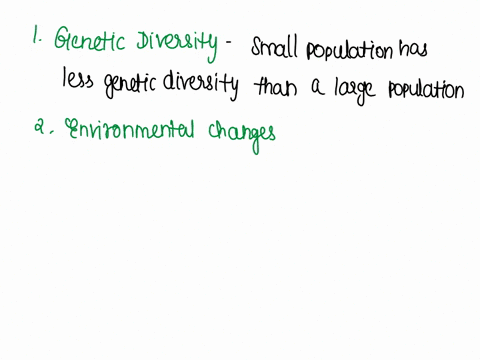 1. Genetic Diversity - Small population has
less genetic diversity than a large population
2. Environmental changes